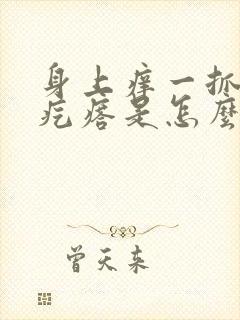 身上痒一抓
疙瘩是怎麽
曾天来